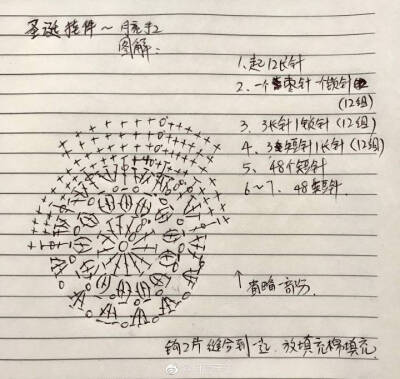 圣诞挂件~月亮2
图解:
1、起12长针
2、一个枣针一个锁针
(12组)
3、3长针1锁针(12组)
4、3短针1长针(12组)
5、48个短针
6~7、48短针
↑
省略一部分.
钩2片缝合到一起.放填充棉填充.